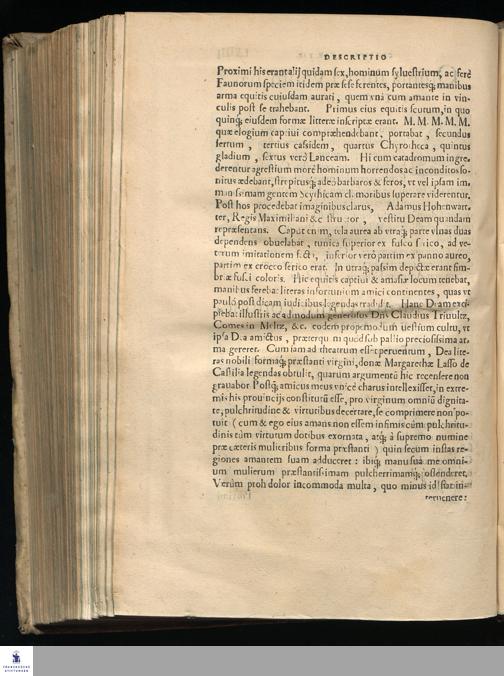 DESCRIPTIO
Proximi his erant alij quidam sex, hominum syluestrium, ac ferè
Faunorum speciem itidem præ se ferentes, portantesq; manibus
arma equitis cuiusdam aurati, quem vnà cum amante in vin-
culis post se trahebant. Primus eius equitis scutum, in quo
quinq; eiusdem formæ litteræ inscriptæ erant. M. M. M. M. M.
quæ elogium captiui compræhendebant, portabat, secundus
sertum, tertius cassidem, quartus Chyrotheca, quintus
gladium, sextus verò Lanceam. Hi cum catadromum ingre-
derentur agrestium more hominum horrendos ac inconditos so-
nitus ædebant, strepitusq; adeò barbaros & feros, vt vel ipsam im-
manissimam gentem Scythicam moribus superare viderentur.
Post hos procedebat imaginibus clarus, Adamus Hohenwart-
ter, Regis Maximiliani &c. vestitu Deam quandam
repræsentans. Caput enim, tela aurea ab vtraq; parte vlnas duas
dependens obuelabat, tunica superior ex fusco serico, ad ve-
terum imitationem facta, inferior verò partim ex panno aureo,
partim ex croceo serico erat. In utraq; passim depictæ erant fim-
briæ fusci coloris. Hic equitis captiui & amasiæ locum tenebat,
manibus ferebat literas infortunium amici continentes, quas vt
paulò post dicam iudicibus legendas tradidit. Hanc Deam exci-
piebat illustris ac admodum generosus Dns Claudius Triuultz,
Comes in Meltz, &c. eodem propemodum uestium cultu, vt
ipsa Dea amictus, præterquam quòd sub pallio preciosissima ar-
ma gereret. Cum iam ad theatrum esset peruentum, Dea lite-
ras nobili formaq; præstanti virgini, donæ Margarethæ Lasso de
Castilia legendas obtulit, quarum argumentū hic recensere non
grauabor. Postq; amicus meus vnicè charus intellexisset, in extre-
mis his prouincijs constitutū esse, pro virginum omniū dignita-
te, pulchritudine & virtutibus decertare, se comprimere non po-
tuit (cum & ego eius amans non essem infimis cùm pulchritu-
dinis tùm virtutum dotibus exornata, atq; à supremo numine
præ cæteris mulieribus forma præstanti) quin secum in istas re-
giones amantem suam adduceret: ibiq; manu sua me omni-
um mulierum præstantissimam pulcherrimamq; ostenderet.
Verùm proh dolor incommoda multa, quo minus id fieret in-
teruenere:
FRANCKESCHE
STIFTUNGEN